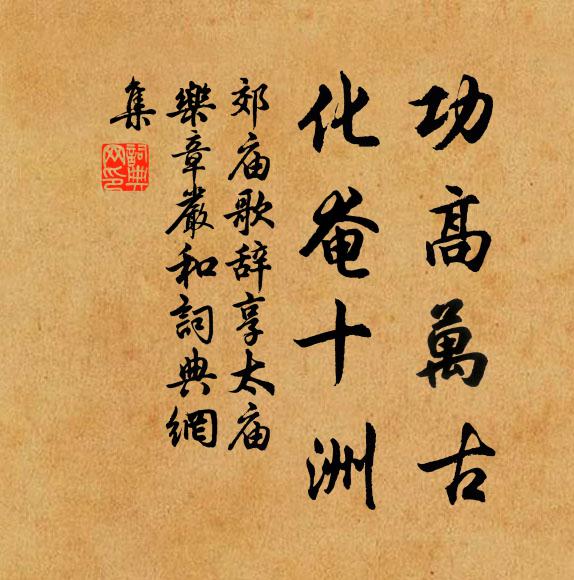 功高萬古
化奄十洲
郊庙歌辞享太庙
樂章嚴和詞典網
集
詞典
网印